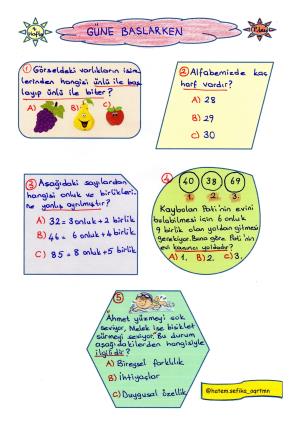 4. Hafta
GÜNE BAŞLARKEN
1 Görseldeki varlıkların isim-
lerinden hangisi ünlü ile baş-
layıp ünlü ile biter?
A)
B)
C)
2. Alfabemizde kaç
harf vardır?
A) 28
B) 29
C) 30
3 Aşağıdaki sayılardan
hangisi onluk ve birlikleri-
ne yanlış ayrılmıştır?
A) 32 = 3 onluk + 2 birlik
B) 46 = 6 onluk + 4 birlik
C) 85 = 8 onluk + 5 birlik
4 40 38 69
1 2 3
Kaybolan Pati'nin evini
bulabilmesi için 6 onluk
9 birlik olan yoldan gitmesi
gerekiyor. Buna göre Pati'nin
evi kaçıncı yoldadır?
A) 1. B) 2. C) 3.
5
Ahmet yüzmeyi çok
seviyor, Melek ise bisiklet
sürmeyi seviyor. Bu durum
aşağıdakilerden hangisiyle
ilgilidir?
A) Bireysel farklılık
B) İhtiyaçlar
C) Duygusal özellik
@hatem.sefika_ogrtmn